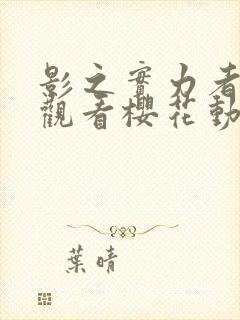 影之實力者
觀看櫻花動
葉晴